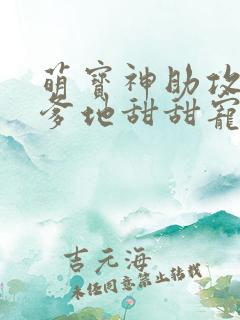 萌寶神助攻
爹地甜甜寵
吉元海
未经同意禁止转载